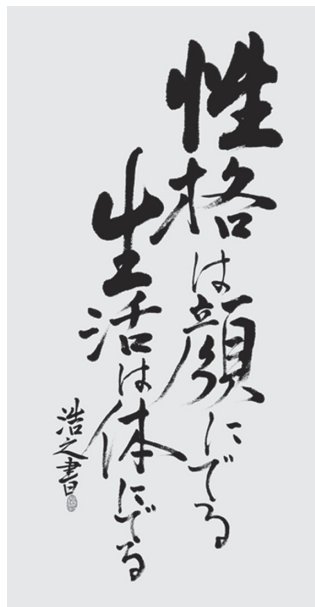 性格は顔にでる
生活は体にでる
浩之書